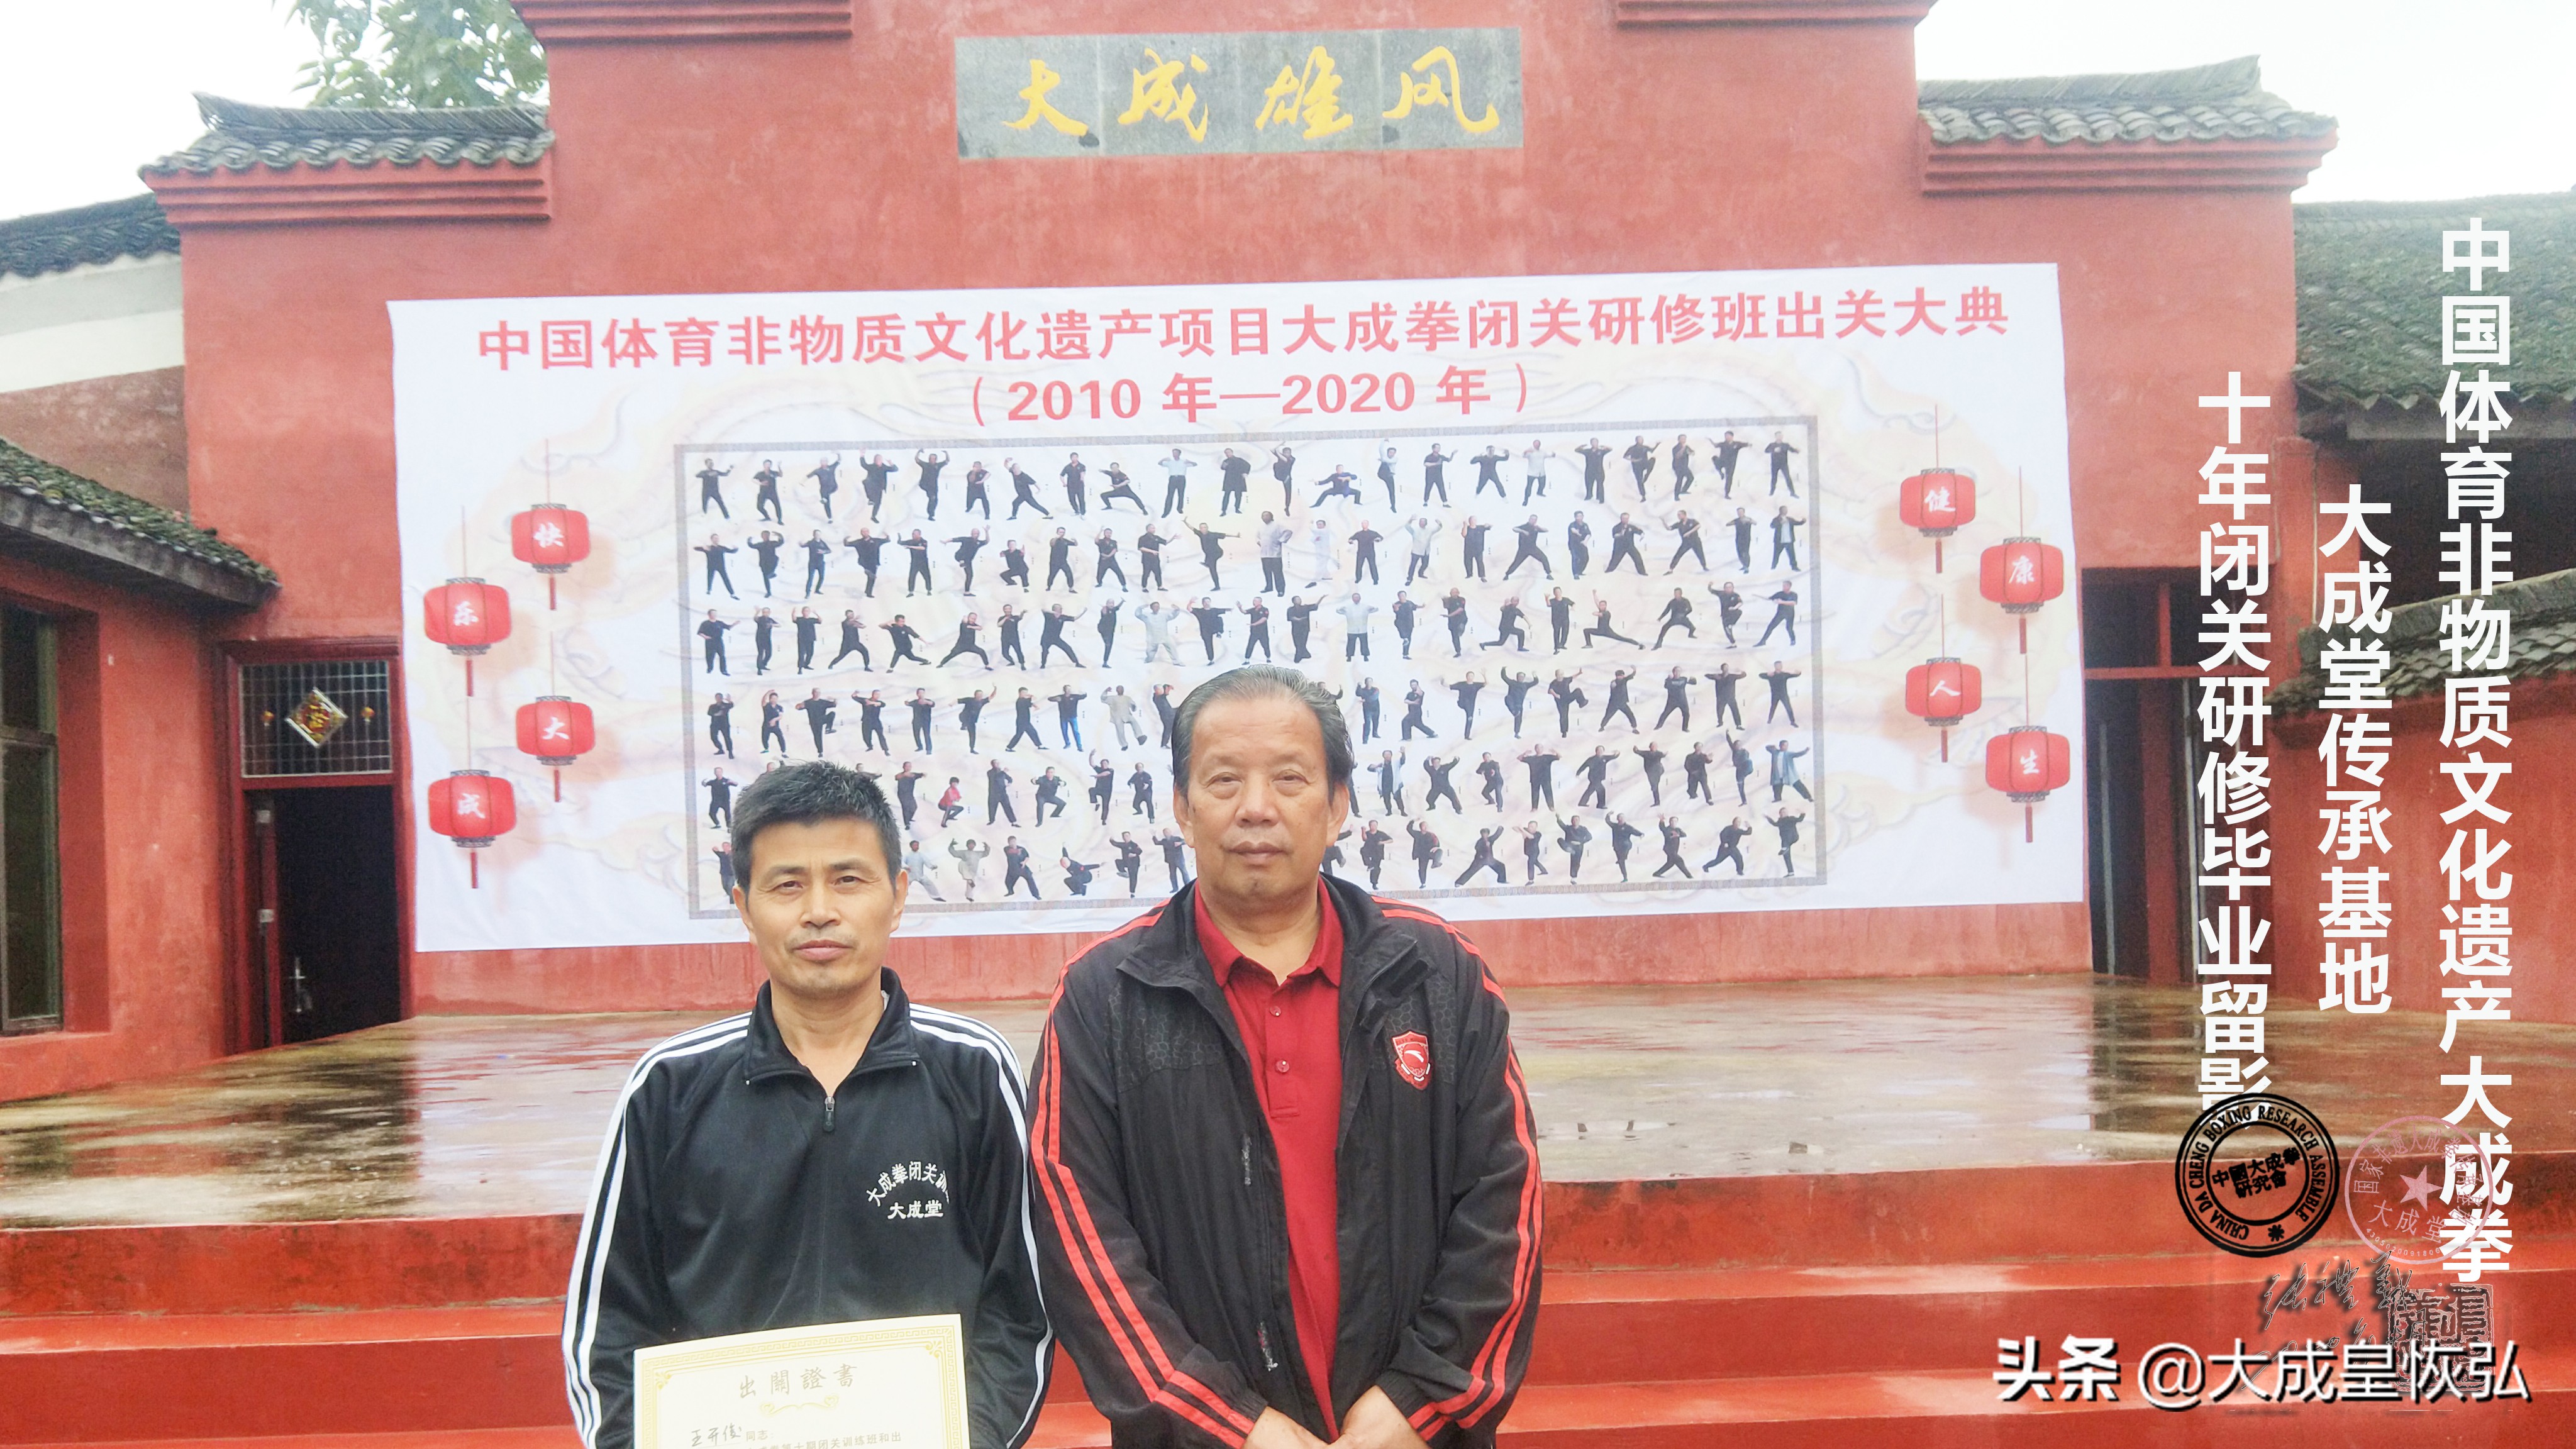 大成雄风
中国体育非物质文化遗产项目大成拳闭关研修班出关大典
（2010 年—2020 年）
快
乐
大
成
健
康
人
生
中国体育非物质文化遗产大成拳
大成堂传承基地
十年闭关研修毕业留影
CHINA DA CHENG BOXING RESEARCH ASSEMBLE
中國大成拳
研究會
大成堂
大成拳闭关训
大成堂
出關證書
同志：
头条 @大成皇恢弘